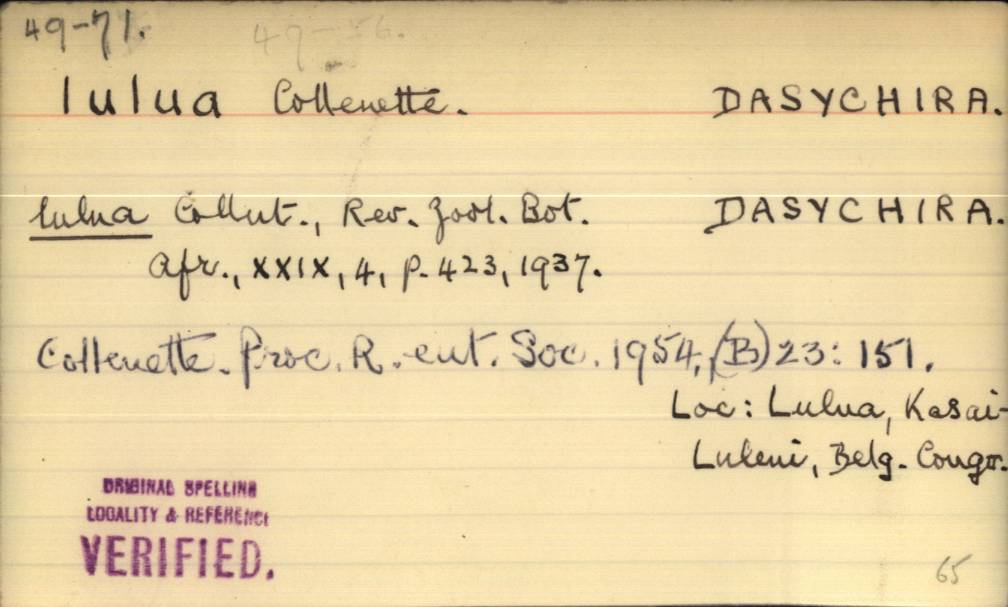 49-71. 49-56.
lulua Collenette. DASYCHIRA.
lulua Collnt., Rev. Zool. Bot. DASYCHIRA.
Afr., XXIX, 4, p. 423, 1937.
Collenette. Proc. R. ent. Soc. 1954, (B) 23: 151.
Loc: Lulua, Kasai-
Luleni, Belg. Congo.
ORIGINAL SPELLING
LOCALITY & REFERENCE
VERIFIED.
65